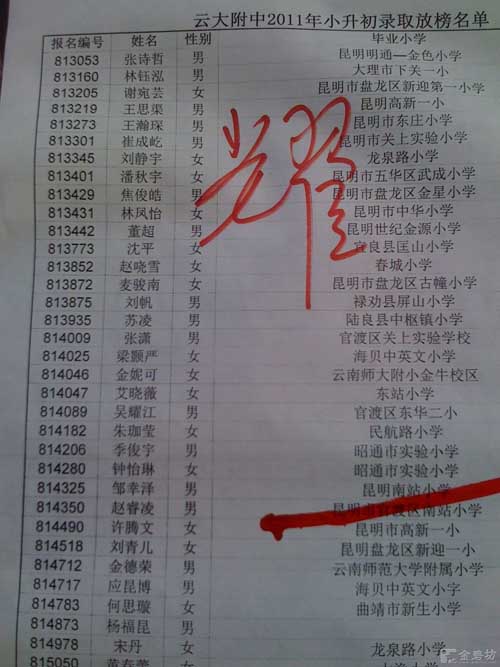 云大附中2011年小升初录取放榜名单
报名编号 姓名 性别 毕业小学
813053 张诗哲 男 昆明明通—金色小学
813160 林钰泓 男 大理市下关一小
813205 谢宛芸 女 昆明市盘龙区新迎第一小学
813219 王思渠 男 昆明高新一小
813273 王瀚琛 男 昆明市东庄小学
813301 崔成屹 男 昆明市关上实验小学
813345 刘静宇 女 龙泉路小学
813401 潘秋宇 女 昆明市五华区武成小学
813429 焦俊皓 男 昆明市盘龙区金星小学
813431 林凤怡 女 昆明市中华小学
813442 董超 男 昆明世纪金源小学
813773 沈平 女 宜良县匡山小学
813852 赵晓雪 女 春城小学
813872 麦骏南 女 昆明市盘龙区古幢小学
813875 刘帆 男 禄劝县屏山小学
813935 苏凌 男 陆良县中枢镇小学
814009 张潇 男 官渡区关上实验学校
814025 梁颢严 女 海贝中英文小学
814046 金妮可 女 云南师大附小金牛校区
814047 艾晓薇 女 东站小学
814089 吴耀江 男 官渡区东华二小
814182 朱珈莹 女 民航路小学
814206 季俊宇 男 昭通市实验小学
814280 钟怡琳 女 昭通市实验小学
814325 邹幸洋 男 昆明南站小学
814350 赵睿凌 男 昆明市官渡区南站小学
814490 许腾文 女 昆明市高新一小
814518 刘青儿 女 昆明盘龙区新迎一小
814712 金德荣 男 云南师范大学附属小学
814717 应昆博 男 海贝中英文小字
814783 何思璇 女 曲靖市新生小学
814873 杨福昆 男
814978 宋丹 女 龙泉路小学
815050
光耀
金碧坊